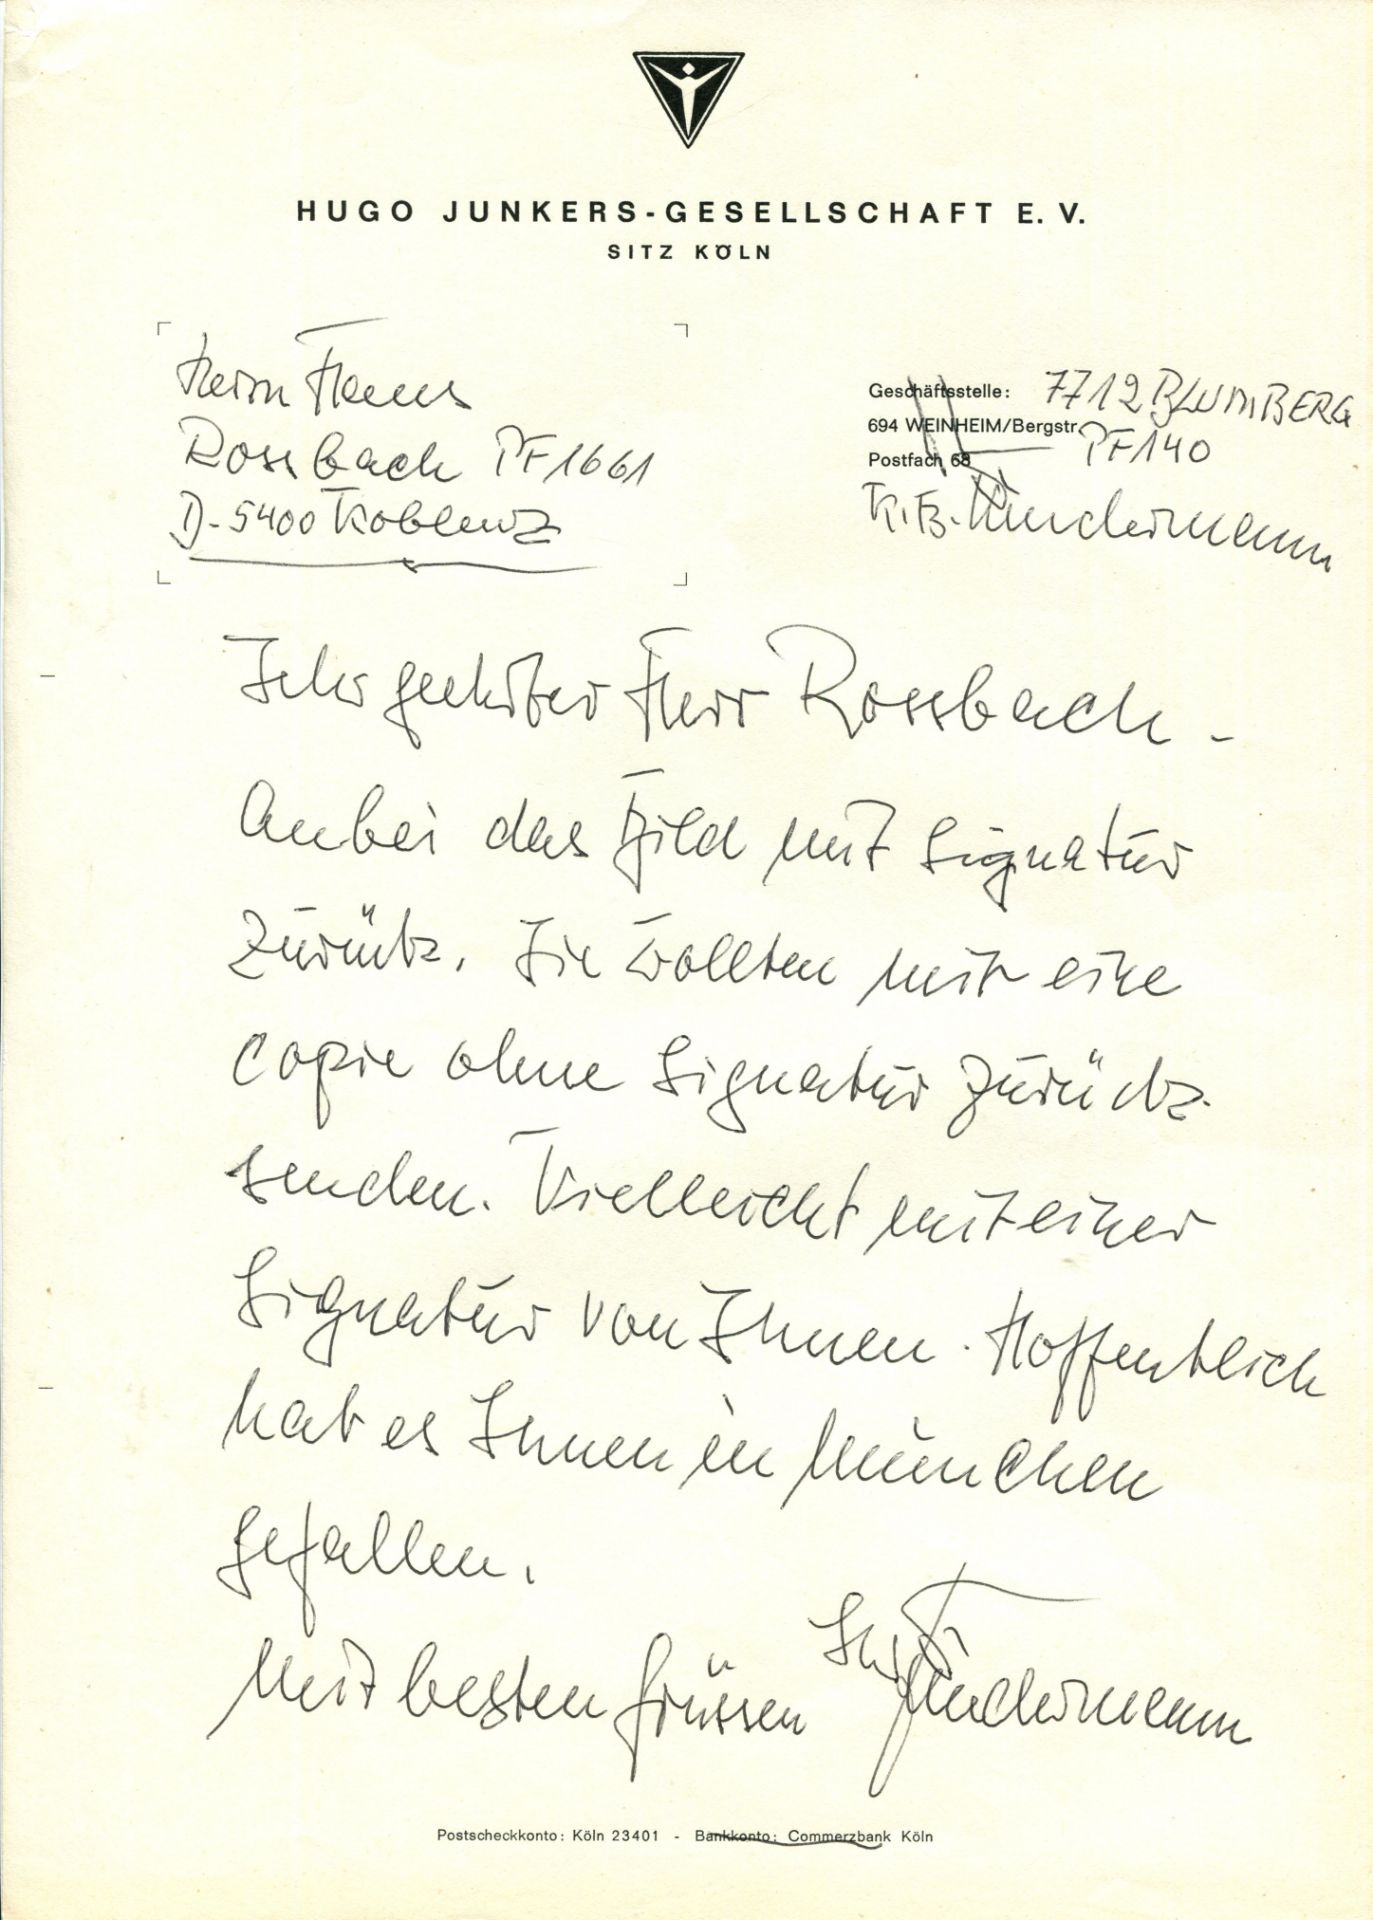 HUGO JUNKERS-GESELLSCHAFT E. V.
SITZ KÖLN
Herrn Hans
Rossbach PF 1661
D-5400 Koblenz
Geschäftsstelle: 7712 BLUMBERG
694 WEINHEIM/Bergstr. PF 140
Postfach 68
K. B. Kindermann
Sehr geehrter Herr Rossbach -
Anbei das Bild mit Signatur
zurück. Sie wollten mir eine
Copie ohne Signatur zurück
senden. Vielleicht mit einer
Signatur von Ihnen. Hoffentlich
hat es Ihnen in München
gefallen.
Mit besten Grüssen Ihr Kindermann
Postscheckkonto: Köln 23401 - Bankkonto: Commerzbank Köln